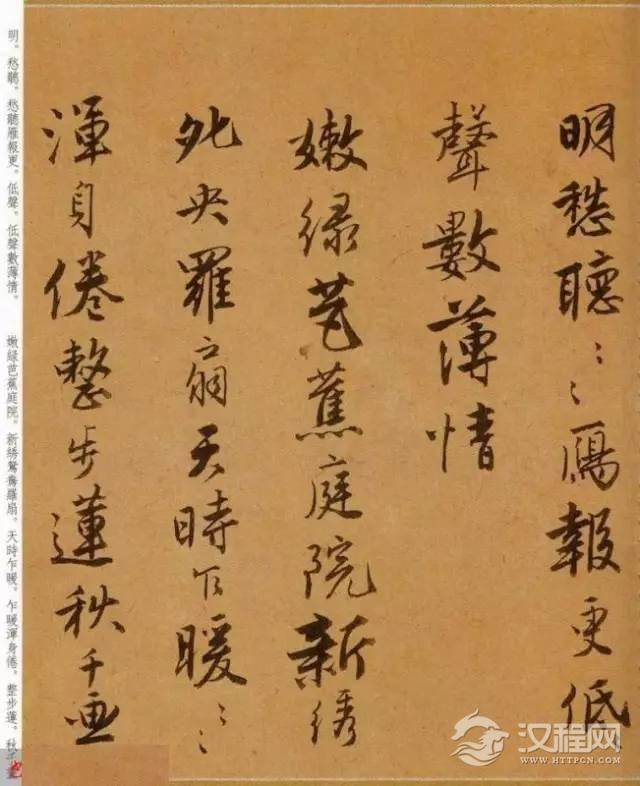 明愁聽〻〻鴈報更低
聲數薄情
嫩緑芭蕉庭院新綉
夗央羅扇天時乍暖〻〻
渾身倦整步蓮秋千画
明。愁聽。愁聽雁報更。低聲。低聲數薄情。 嫩緑芭蕉庭院。新綉鴛鴦羅扇。天時乍暖。乍暖渾身倦。整步蓮。秋千
汉程网
WWW.HTTPCN.COM